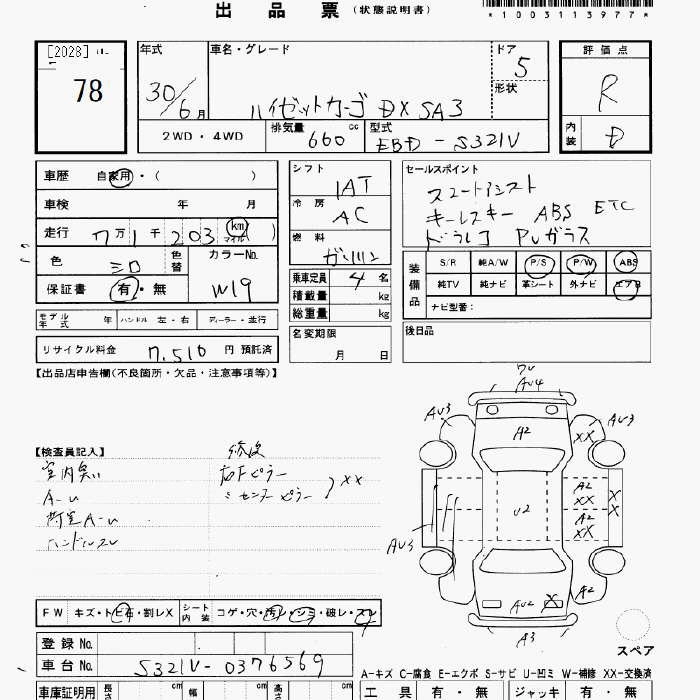 出品票(状態説明書)
*1003113977*
[2028]
78
年式
30/6月
車名・グレード
ハイゼットカーゴ DX SA3
ドア
5
形状
評価点
R
内装
D
2WD・4WD
排気量
660
cc
型式
EBD-S321V
車歴 自家用・( )
車検 年 月
走行 7万1千203 km マイル )
色
シロ
色替
カラーNo.
W19
保証書 有・無
モデル年式 年 ハンドル 左・右 ディーラー・並行
リサイクル料金 7,510 円 預託済
シフト
IAT
冷房
AC
燃料
ガソリン
乗車定員 4 名
積載量 kg
総重量 kg
名変期限
月 日
セールスポイント
スマートアシスト
キーレスキー ABS ETC
ドラレコ PVガラス
装備品
S/R 純A/W P/S P/W ABS
純TV 純ナビ 革シート 外ナビ エアB
ナビ型番:
後日品
【出品店申告欄(不良箇所・欠品・注意事項等)】
【検査員記入】
室内臭い
A-U
荷室A-U
ハンドルスレ
修復
右Fピラー
〃センターピラー
XX
AU4
AU3
AU3
A2
XX
A2
XX
A2
XX
X
X
U2
AU3
A2
AU2
X
A3
スペア
FW キズ・トビ石・割レX シート内装 コゲ・穴・汚レ・シミ・破レ・スレ
登録No.
車台No. S321V-0376569
A-キズ C-腐食 E-エクボ S-サビ U-凹ミ W-補修 XX-交換済
車庫証明用 長さ cm 幅 cm 高さ cm
工具 有・無 ジャッキ 有・無